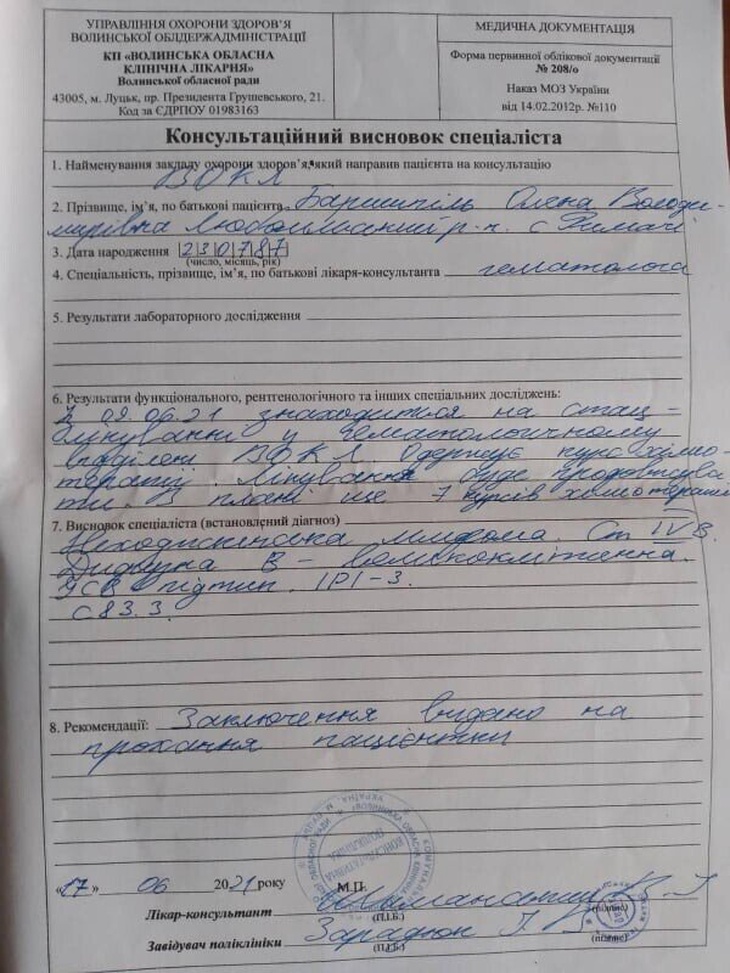 УПРАВЛІННЯ ОХОРОНИ ЗДОРОВ'Я
ВОЛИНСЬКОЇ ОБЛДЕРЖАДМІНІСТРАЦІЇ
КП «ВОЛИНСЬКА ОБЛАСНА
КЛІНІЧНА ЛІКАРНЯ»
Волинської обласної ради
43005, м. Луцьк, пр. Президента Грушевського, 21.
Код за ЄДРПОУ 01983163
МЕДИЧНА ДОКУМЕНТАЦІЯ
Форма первинної облікової документації
№ 208/о
Наказ МОЗ України
від 14.02.2012р. №110
Консультаційний висновок спеціаліста
1. Найменування закладу охорони здоров'я, який направив пацієнта на консультацію
ВОКЛ
2. Прізвище, ім'я, по батькові пацієнта Олена Володи-
мирівна р-н. с Римачі
3. Дата народження |2|3|0|7|8|7|
(число, місяць, рік)
4. Спеціальність, прізвище, ім'я, по батькові лікаря-консультанта гематолога
5. Результати лабораторного дослідження
6. Результати функціонального, рентгенологічного та інших спеціальних досліджень:
З 09.06.21 знаходиться на стац-
лікуванні у гематологічному
відділені ВОКЛ. Одержує курс хіміо-
терапії. Лікування буде продовжува
ти. В плані ще 7 курсів хіміотерапії
7. Висновок спеціаліста (встановлений діагноз)
Неходжкінська лімфома. Ст IV В.
Дифузна В - великоклітинна.
підтип. IPI-3.
С83.3.
8. Рекомендації: Заключення видано на
прохання пацієнтки
«17» 06 2021 року М.П.
Лікар-консультант
(П.І.Б.) (підпис)
Завідувач поліклініки
(П.І.Б.) (підпис)